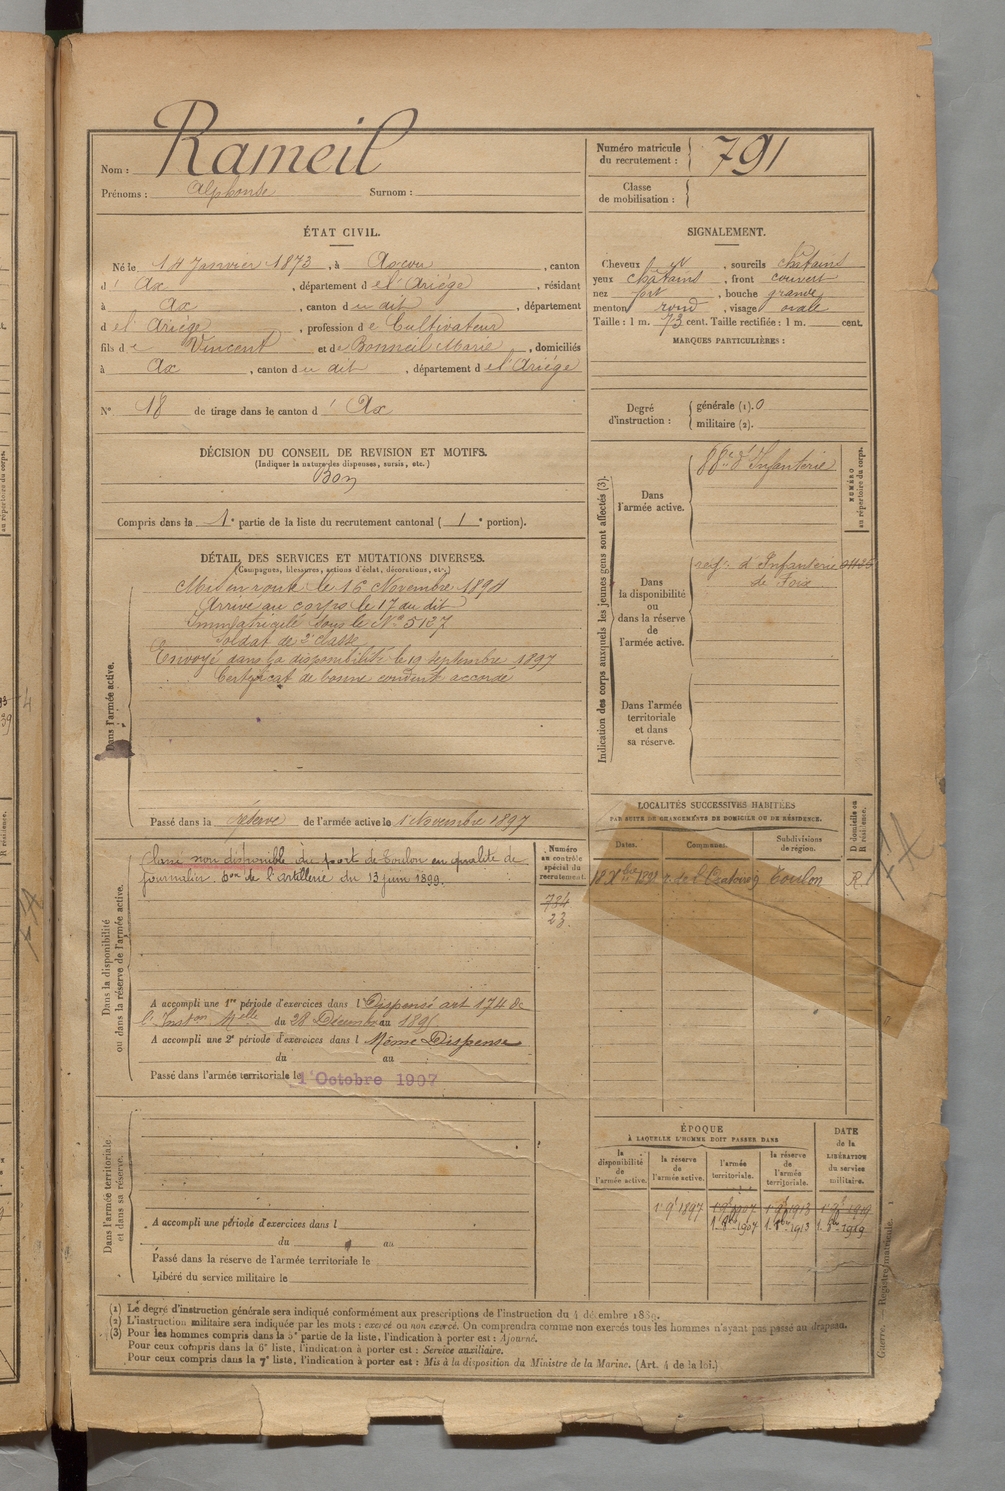 Nom : Rameil
Prénoms : Alphonse Surnom :
Numéro matricule du recrutement : 791
Classe de mobilisation :
ÉTAT CIVIL.
Né le 14 Janvier 1873, à Ascou, canton
d' Ax, département de l'Ariége, résidant
à Ax, canton du dit, département
de l'Ariége, profession de Cultivateur
fils de Vincent et de Bonneil Marie, domiciliés
à Ax, canton du dit, département de l'Ariége
N° 18 de tirage dans le canton d' Ax
SIGNALEMENT.
Cheveux, sourcils châtains
yeux châtains, front couvert
nez fort, bouche grande
menton rond, visage ovale
Taille : 1 m. 73 cent. Taille rectifiée : 1 m. cent.
MARQUES PARTICULIÈRES :
Degré d'instruction : générale (1). 0
militaire (2).
DÉCISION DU CONSEIL DE REVISION ET MOTIFS.
(Indiquer la nature des dispenses, sursis, etc.)
Bon
Compris dans la 1e partie de la liste du recrutement cantonal ( 1e portion).
DÉTAIL DES SERVICES ET MUTATIONS DIVERSES.
(Campagnes, blessures, actions d'éclat, décorations, etc.)
Dans l'armée active.
Mis en route le 16 Novembre 1894
Arrivé au corps le 17 du dit
Immatriculé sous le N° 5127
Soldat de 2e classe
Envoyé dans la disponibilité le 19 septembre 1897
Certificat de bonne conduite accordé
Passé dans la réserve de l'armée active le 1 Novembre 1897
Indication des corps auxquels les jeunes gens sont affectés (3).
NUMÉRO au répertoire du corps.
Dans l'armée active.
88e d'Infanterie
Dans la disponibilité ou dans la réserve de l'armée active.
d'Infanterie
de Foix
Dans l'armée territoriale et dans sa réserve.
Dans la disponibilité ou dans la réserve de l'armée active.
Numéro au contrôle spécial du recrutement.
734
23
Classé non disponible du port de Toulon en qualité de
journalier Don de l'artillerie du 13 juin 1899.
A accompli une 1re période d'exercices dans l Dispensé art 174 de
l'Inston Melle du 28 Décembre 1895
A accompli une 2e période d'exercices dans l Même Dispense
du au
Passé dans l'armée territoriale le 1er Octobre 1907
LOCALITÉS SUCCESSIVES HABITÉES
PAR SUITE DE CHANGEMENTS DE DOMICILE OU DE RÉSIDENCE.
Dates. Communes. Subdivisions de région. D domicile ou R résidence.
r. de l'Oratoire Toulon R
Dans l'armée territoriale et dans sa réserve.
A accompli une période d'exercices dans l
du au
Passé dans la réserve de l'armée territoriale le
Libéré du service militaire le
ÉPOQUE
À LAQUELLE L'HOMME DOIT PASSER DANS
la disponibilité de l'armée active.
la réserve de l'armée active.
l'armée territoriale.
la réserve de l'armée territoriale.
DATE de la LIBÉRATION du service militaire.
1897 1907 1913 1919
1907 1913 1919
(1) Le degré d'instruction générale sera indiqué conformément aux prescriptions de l'instruction du 4 décembre 1889.
(2) L'instruction militaire sera indiquée par les mots : exercé ou non exercé. On comprendra comme non exercés tous les hommes n'ayant pas passé au drapeau.
(3) Pour les hommes compris dans la 5e partie de la liste, l'indication à porter est : Ajourné.
Pour ceux compris dans la 6e liste, l'indication à porter est : Service auxiliaire.
Pour ceux compris dans la 7e liste, l'indication à porter est : Mis à la disposition du Ministre de la Marine. (Art. 4 de la loi.)
Guerre. Registre matricule.